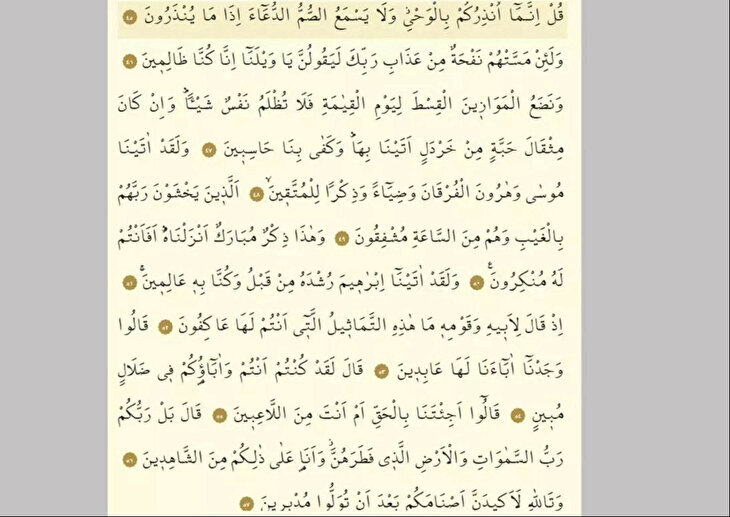 قُلْ اِنَّمَٓا اُنْذِرُكُمْ بِالْوَحْيِۘ وَلَا يَسْمَعُ الصُّمُّ الدُّعَٓاءَ اِذَا مَا يُنْذَرُونَ ٤٥
وَلَئِنْ مَسَّتْهُمْ نَفْحَةٌ مِنْ عَذَابِ رَبِّكَ لَيَقُولُنَّ يَا وَيْلَنَٓا اِنَّا كُنَّا ظَالِمٖينَ ٤٦
وَنَضَعُ الْمَوَازٖينَ الْقِسْطَ لِيَوْمِ الْقِيٰمَةِ فَلَا تُظْلَمُ نَفْسٌ شَيْـٔاًۜ وَاِنْ كَانَ
مِثْقَالَ حَبَّةٍ مِنْ خَرْدَلٍ اَتَيْنَا بِهَاۜ وَكَفٰى بِنَا حَاسِبٖينَ ٤٧ وَلَقَدْ اٰتَيْنَا
مُوسٰى وَهٰرُونَ الْفُرْقَانَ وَضِيَٓاءً وَذِكْرًا لِلْمُتَّقٖينَۙ ٤٨ اَلَّذٖينَ يَخْشَوْنَ رَبَّهُمْ
بِالْغَيْبِ وَهُمْ مِنَ السَّاعَةِ مُشْفِقُونَ ٤٩ وَهٰذَا ذِكْرٌ مُبَارَكٌ اَنْزَلْنَاهُۜ اَفَاَنْتُمْ
لَهُ مُنْكِرُونَ۟ ٥٠ وَلَقَدْ اٰتَيْنَٓا اِبْرٰهٖيمَ رُشْدَهُ مِنْ قَبْلُ وَكُنَّا بِهٖ عَالِمٖينَۚ ٥١
اِذْ قَالَ لِاَبٖيهِ وَقَوْمِهٖ مَا هٰذِهِ التَّمَاثٖيلُ الَّتٖٓي اَنْتُمْ لَهَا عَاكِفُونَ ٥٢ قَالُوا
وَجَدْنَٓا اٰبَٓاءَنَا لَهَا عَابِدٖينَ ٥٣ قَالَ لَقَدْ كُنْتُمْ اَنْتُمْ وَاٰبَٓاؤُ۬كُمْ فٖي ضَلَالٍ
مُبٖينٍ ٥٤ قَالُٓوا اَجِئْتَنَا بِالْحَقِّ اَمْ اَنْتَ مِنَ اللَّاعِبٖينَ ٥٥ قَالَ بَلْ رَبُّكُمْ
رَبُّ السَّمٰوَاتِ وَالْاَرْضِ الَّذٖي فَطَرَهُنَّۘ وَاَنَا۬ عَلٰى ذٰلِكُمْ مِنَ الشَّاهِدٖينَ ٥٦
وَتَاللّٰهِ لَاَكٖيدَنَّ اَصْنَامَكُمْ بَعْدَ اَنْ تُوَلُّوا مُدْبِرٖينَ ٥٧